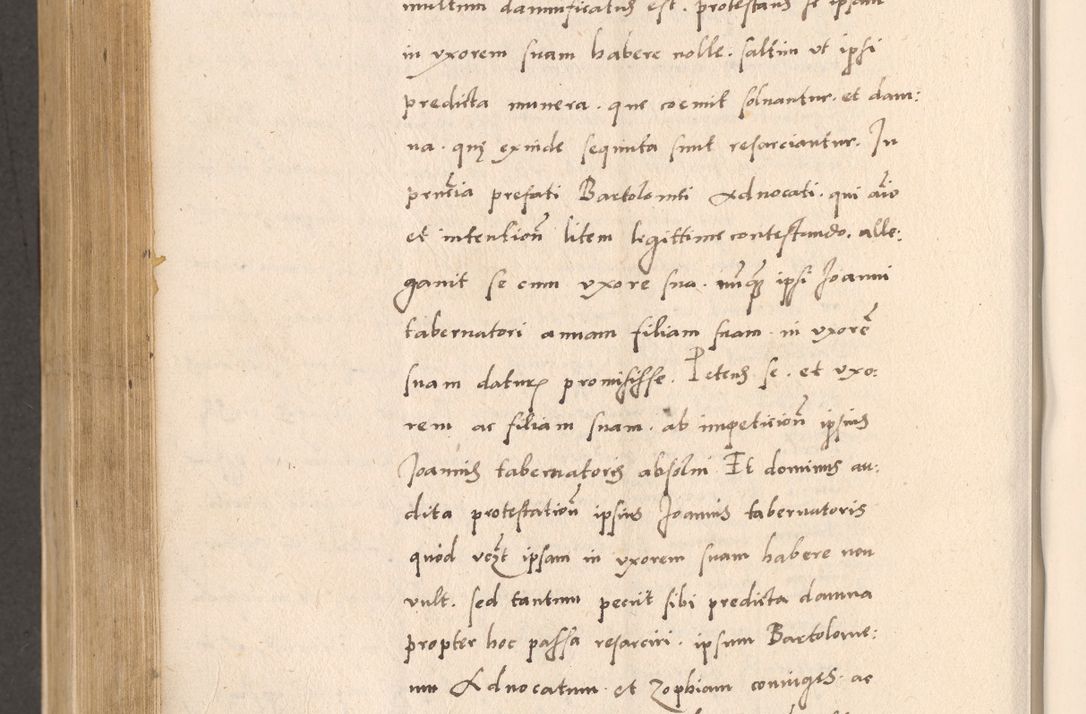 multum damnificatus est. protestans se ipsam
in vxorem suam habere nolle. saltim vt ipsi
predicta munera. que coemit soluantur. et dam:
na. quę exinde sequuta sunt resarciantur. In
prntia prefati Bartolomei Aduocati. qui aio
et intention litem legittime contestando. alle:
gauit se cum vxore sua. nunq ipsi Joanni
tabernatori annam filiam suam in vxore
suam datur promisisse. Petens se. et vxo:
rem ac filiam suam. ab impeticion ipsius
Joannis tabernatoris absolui Et dominus au:
dita protestation ipsius Joannis tabernatoris
quod ipsam in vxorem suam habere non
vult. sed tantum peciit sibi predicta damna
propter hoc passa resarciri. ipsum Bartolome:
um Aduocatum et Zophiam coniuges. ac